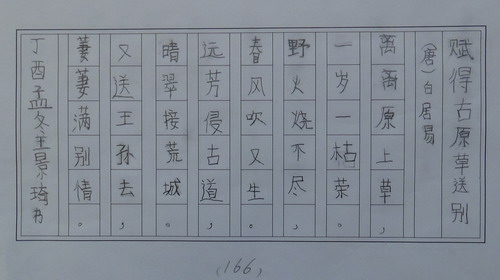 赋得古原草送别
（唐）白居易
离离原上草，
一岁一枯荣。
野火烧不尽，
春风吹又生。
远芳侵古道，
晴翠接荒城。
又送王孙去，
萋萋满别情。
丁酉孟冬王景琦书
（166）